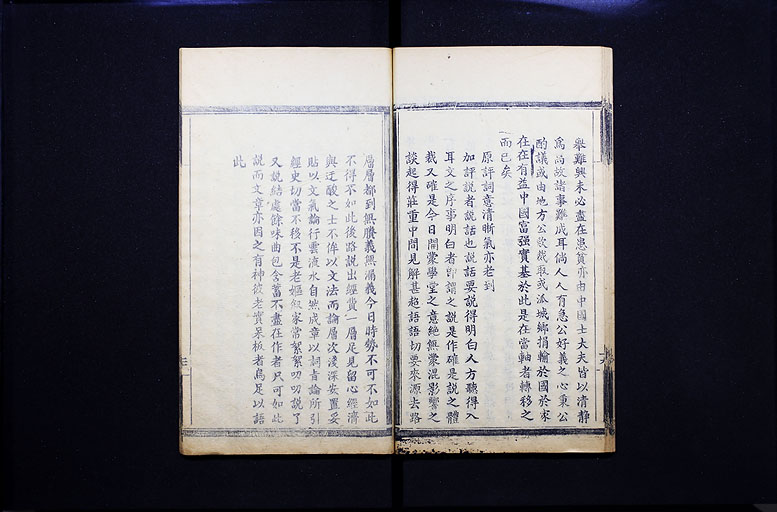 舉難興未必盡在患貧亦由中國士大夫皆以清靜
為尚故諸事難成耳倘人人有急公好義之心秉公
酌議或由地方公收歲取或派城鄉捐輸於國於家
在在有益中國富强實基於此是在當軸者轉移之
而已矣
原評詞意清晰氣亦老到
加評說者說話也說話要說得明白人方聽得入
耳文之序事明白者即謂之說是作確是說之體
裁又確是今日開蒙學堂之意絕無蒙混影響之
談起得莊重中間見解甚超語語切要來源去路
層層都到無賸義無漏義今日時勢不可不如此
不得不如此後路說出經費一層足見留心經濟
與迂酸之士不侔以文法而論層次淺深安置妥
貼以文氣論行雲流水自然成章以詞旨論所引
經史切當不移不是老嫗叙家常絮絮叨叨說了
又說結處餘味曲包含蓄不盡在作者只可如此
說而文章亦因之有神彼老實呆板者烏足以語
此